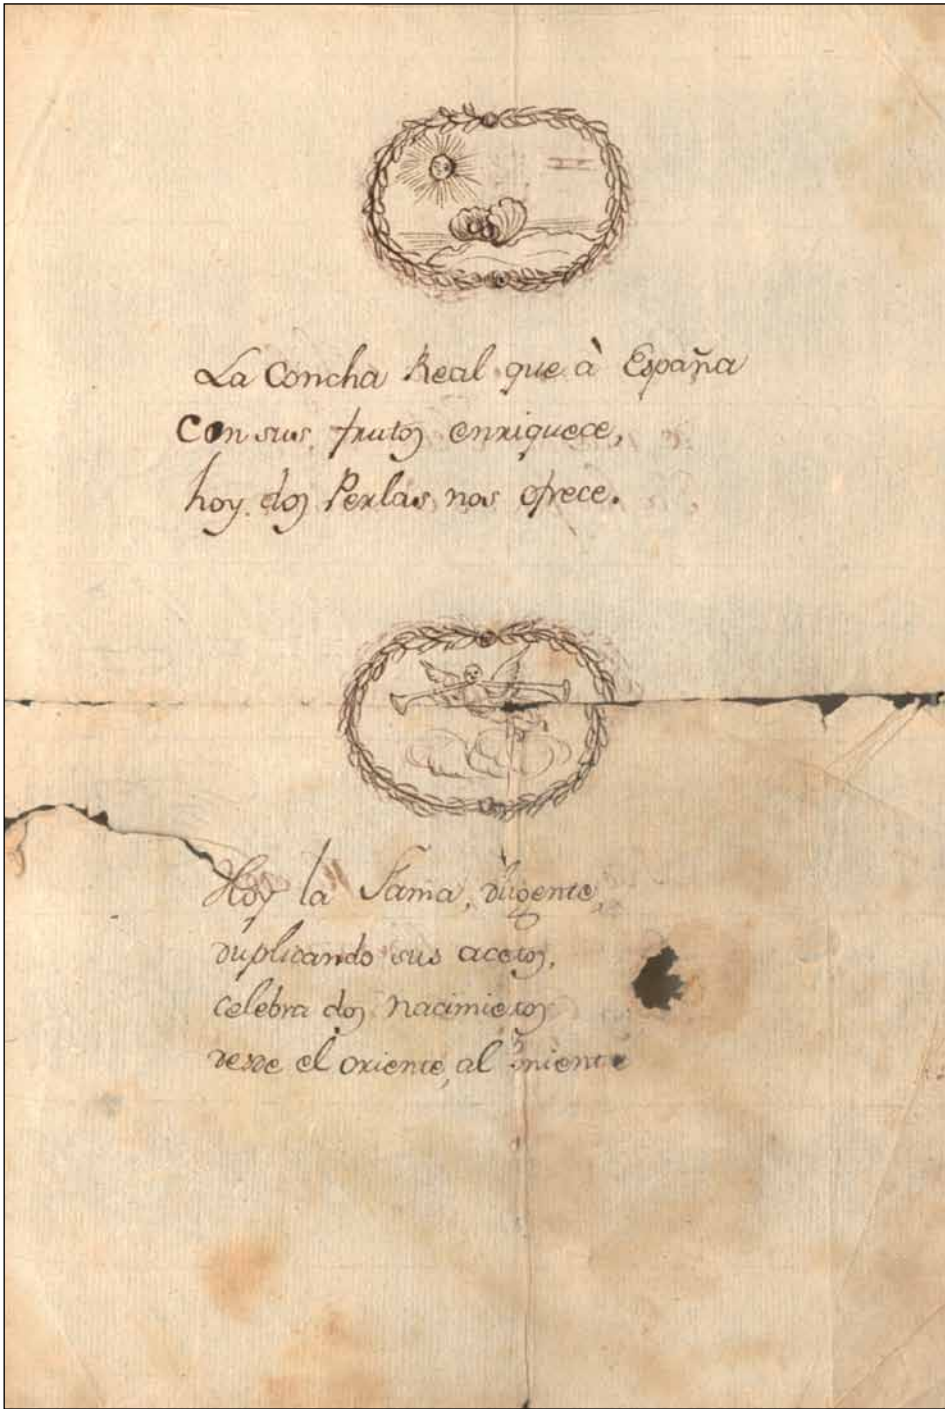 La Concha Real que à España
Con sus frutos enriquece,
hoy dos Perlas nos ofrece.
Hoy la Fama, diligente,
duplicando sus acentos,
celebra dos nacimientos
desde el oriente, al